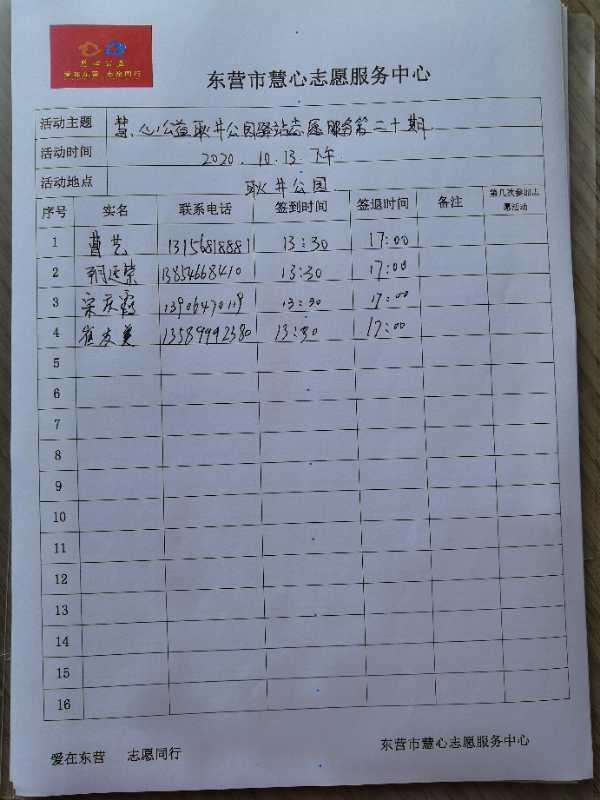 慧心公益
爱在东营 志愿同行
东营市慧心志愿服务中心
活动主题 慧心公益耿井公园驿站志愿服务第二十期
活动时间 2020.10.13 下午
活动地点 耿井公园
序号 实名 联系电话 签到时间 签退时间 备注 第几次参加志愿活动
1 曹艺 13156818881 13:30 17:00
2 延荣 13854668410 13:30 17:00
3 宋庆霞 13906470119 13:30 17:00
4 崔友美 13589992380 13:30 17:00
5
6
7
8
9
10
11
12
13
14
15
16
爱在东营 志愿同行 东营市慧心志愿服务中心